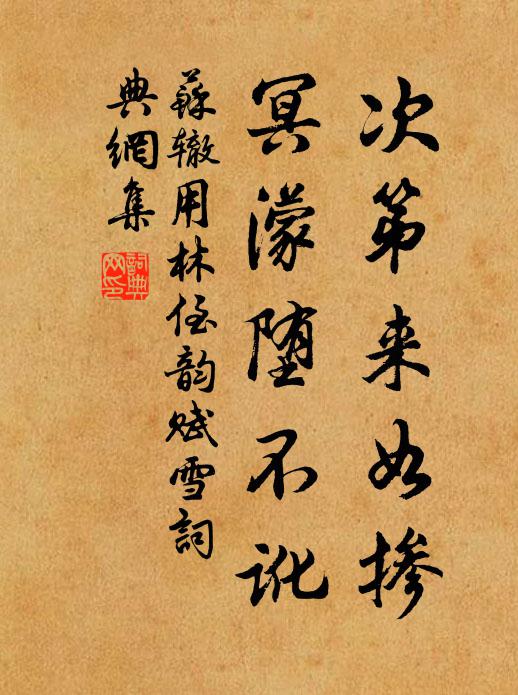 次第来如掺
冥濛堕不讹
蘇辙用林侄韵赋雪詞
典網集
詞典网印